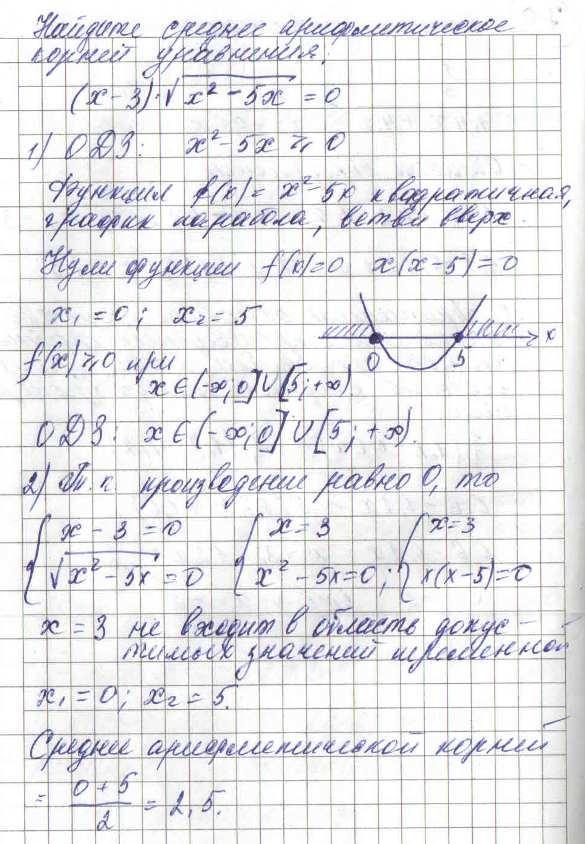 Найдите среднее арифметическое
корней уравнения.
(x-3)·√(x²-5x) = 0
1) ОДЗ: x²-5x ⩾ 0
Функция f(x)= x²-5x квадратичная,
график парабола, ветви вверх.
Нули функции f(x)=0 x(x-5)=0
x₁=0; x₂=5
0 5 x
f(x)⩾0 при
x∈(-∞,0]∪[5;+∞)
ОДЗ: x∈(-∞;0]∪[5;+∞).
2) Т.к. произведение равно 0, то
{ x-3=0 { x=3 { x=3
√(x²-5x)=0 x²-5x=0; x(x-5)=0
x=3 не входит в область допус-
тимых значений переменной
x₁=0; x₂=5.
Среднее арифметической корней
= (0+5)/2 = 2,5.